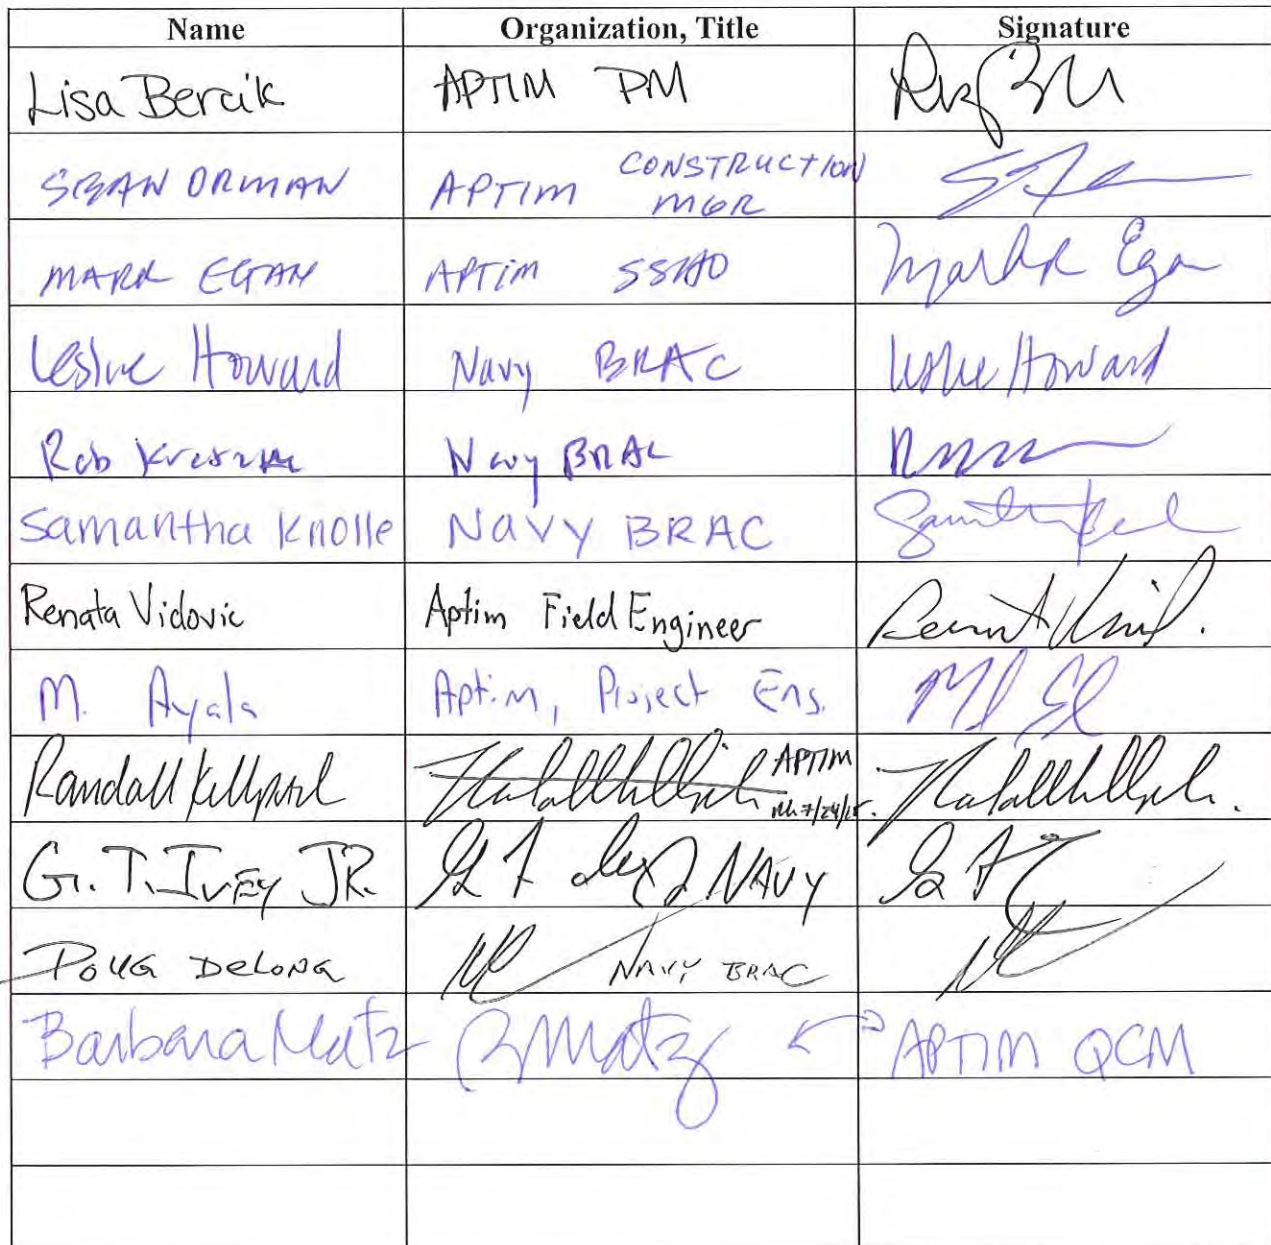 Name Organization, Title Signature
Lisa Bercik APTIM PM
SEAN ORMAN APTIM CONSTRUCTION MGR
MARK EGAN APTIM SSHO Mark R Egan
Leslie Howard Navy BRAC Leslie Howard
Rob Navy BRAC
Samantha Knolle NAVY BRAC
Renata Vidovic Aptim Field Engineer
M. Ayala Aptim, Project Eng.
Randall APTIM
G. T. IVEY JR. NAVY
DOUG DELONG NAVY BRAC
Barbara Matz BMatz APTIM QCM